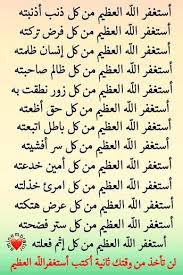 أستغفر الله العظيم من كل ذنب أذنبته
أستغفر الله العظيم من كل فرض تركته
أستغفر الله العظيم من كل إنسان ظلمته
أستغفر الله العظيم من كل ظالم صاحبته
أستغفر الله العظيم من كل زور نطقت به
أستغفر الله العظيم من كل حق أضعته
أستغفر الله العظيم من كل باطل اتبعته
أستغفر الله العظيم من كل سر أفشيته
أستغفر الله العظيم من كل أمين خدعته
أستغفر الله العظيم من كل امرئ خذلته
أستغفر الله العظيم من كل عرض هتكته
أستغفر الله العظيم من كل ستر فضحته
أستغفر الله العظيم من كل إثم فعلته
لن تأخذ من وقتك ثانية أكتب أستغفرالله العظيم